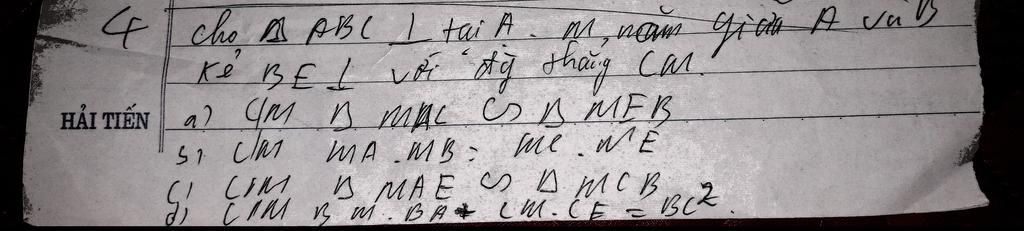 4 cho Δ ABC ⊥ tại A. M, nằm giữa A và B
Kẻ BE ⊥ với đg thẳng CM.
HẢI TIẾN a) C/M Δ MAC ∽ Δ MEB
b) C/M MA.MB = MC.ME
c) C/M Δ MAE ∽ Δ MCB
d) C/M BM.BA + CM.CE = BC².